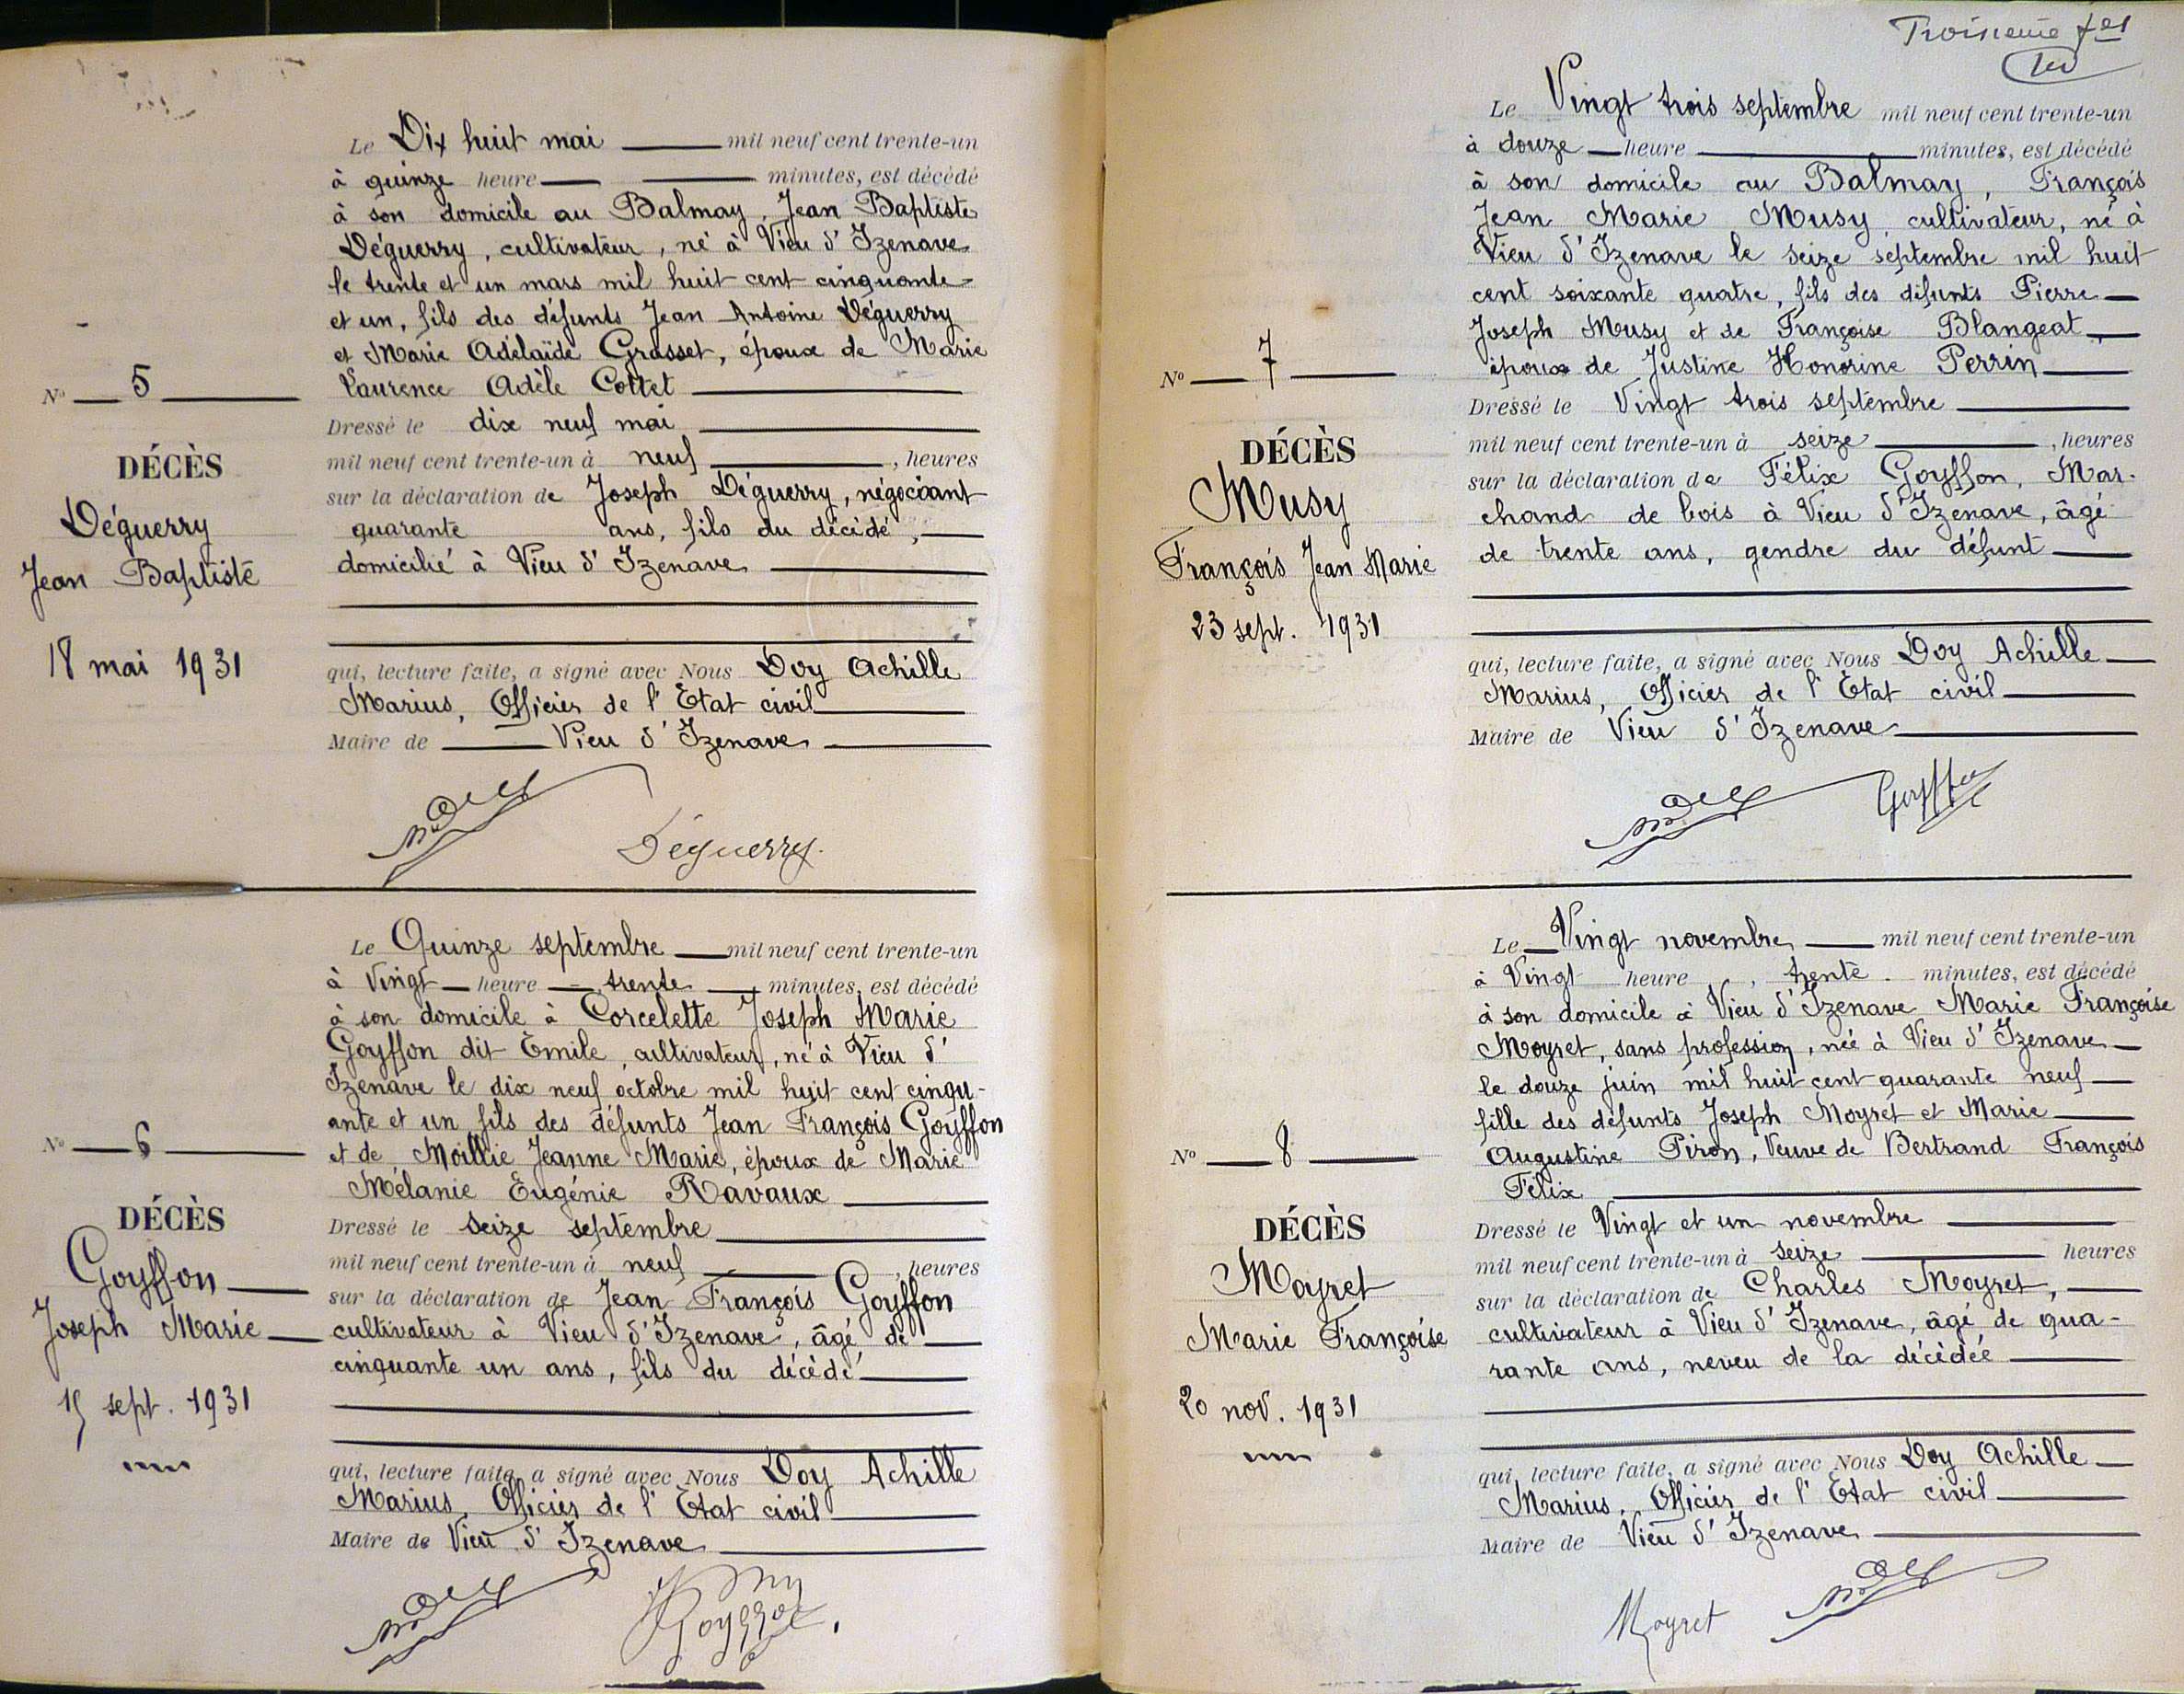 Le Dix huit mai mil neuf cent trente-un
à quinze heure minutes, est décédé
à son domicile au Balmay, Jean Baptiste
Déguerry, cultivateur, né à Vieu d'Izenave
le trente et un mars mil huit cent cinquante
et un, fils des défunts Jean Antoine Déguerry
et Marie Adélaïde Grasset, époux de Marie
Laurence Adèle Cottet
N° 5
Dressé le dix neuf mai
mil neuf cent trente-un à neuf, heures
DÉCÈS
sur la déclaration de Joseph Déguerry, négociant
Déguerry
quarante ans, fils du décédé,
Jean Baptiste
domicilié à Vieu d'Izenave
18 mai 1931
qui, lecture faite, a signé avec Nous Doy Achille
Marius, Officier de l'Etat civil
Maire de Vieu d'Izenave
Déguerry
Le Quinze septembre mil neuf cent trente-un
à Vingt heure trente minutes, est décédé
à son domicile à Corcelette Joseph Marie
Goyffon dit Emile, cultivateur, né à Vieu d'
Izenave le dix neuf octobre mil huit cent cinqu-
ante et un, fils des défunts Jean François Goyffon
N° 6
et de Moillie Jeanne Marie, époux de Marie
Mélanie Eugénie Ravaux
DÉCÈS
Dressé le seize septembre
Goyffon
mil neuf cent trente-un à neuf, heures
Joseph Marie
sur la déclaration de Jean François Goyffon
cultivateur à Vieu d'Izenave, âgé de
cinquante un ans, fils du décédé
15 sept. 1931
qui, lecture faite, a signé avec Nous Doy Achille
Marius, Officier de l'Etat civil
Maire de Vieu d'Izenave
Troisième
Le Vingt trois septembre mil neuf cent trente-un
à douze heure minutes, est décédé
à son domicile au Balmay, François
Jean Marie Musy, cultivateur, né à
Vieu d'Izenave le seize septembre mil huit
cent soixante quatre, fils des défunts Pierre
Joseph Musy et de Françoise Blangeat,
N° 7
époux de Justine Honorine Perrin
Dressé le Vingt trois septembre
DÉCÈS
mil neuf cent trente-un à seize, heures
Musy
sur la déclaration de Félix Goyffon, Mar-
chand de bois à Vieu d'Izenave, âgé
François Jean Marie
de trente ans, gendre du défunt
23 sept. 1931
qui, lecture faite, a signé avec Nous Doy Achille
Marius, Officier de l'Etat civil
Maire de Vieu d'Izenave
Le Vingt novembre mil neuf cent trente-un
à Vingt heure, trente minutes, est décédé
à son domicile à Vieu d'Izenave Marie Françoise
Moyret, sans profession, née à Vieu d'Izenave
le douze juin mil huit cent quarante neuf
fille des défunts Joseph Moyret et Marie
N° 8
Augustine Piron, Veuve de Bertrand François
Félix
DÉCÈS
Dressé le Vingt et un novembre
Moyret
mil neuf cent trente-un à seize heures
Marie Françoise
sur la déclaration de Charles Moyret,
cultivateur à Vieu d'Izenave, âgé de qua-
rante ans, neveu de la décédée
20 nov. 1931
qui, lecture faite, a signé avec Nous Doy Achille
Marius, Officier de l'Etat civil
Maire de Vieu d'Izenave
Moyret